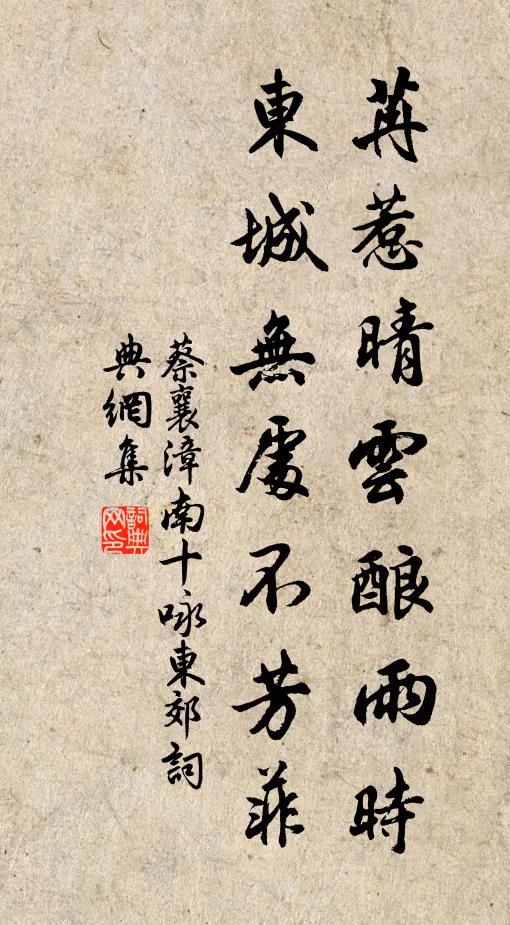 苒惹晴雲酿雨時
東城無處不芳菲
蔡襄漳南十咏東郊詞
典網集
詞典网印